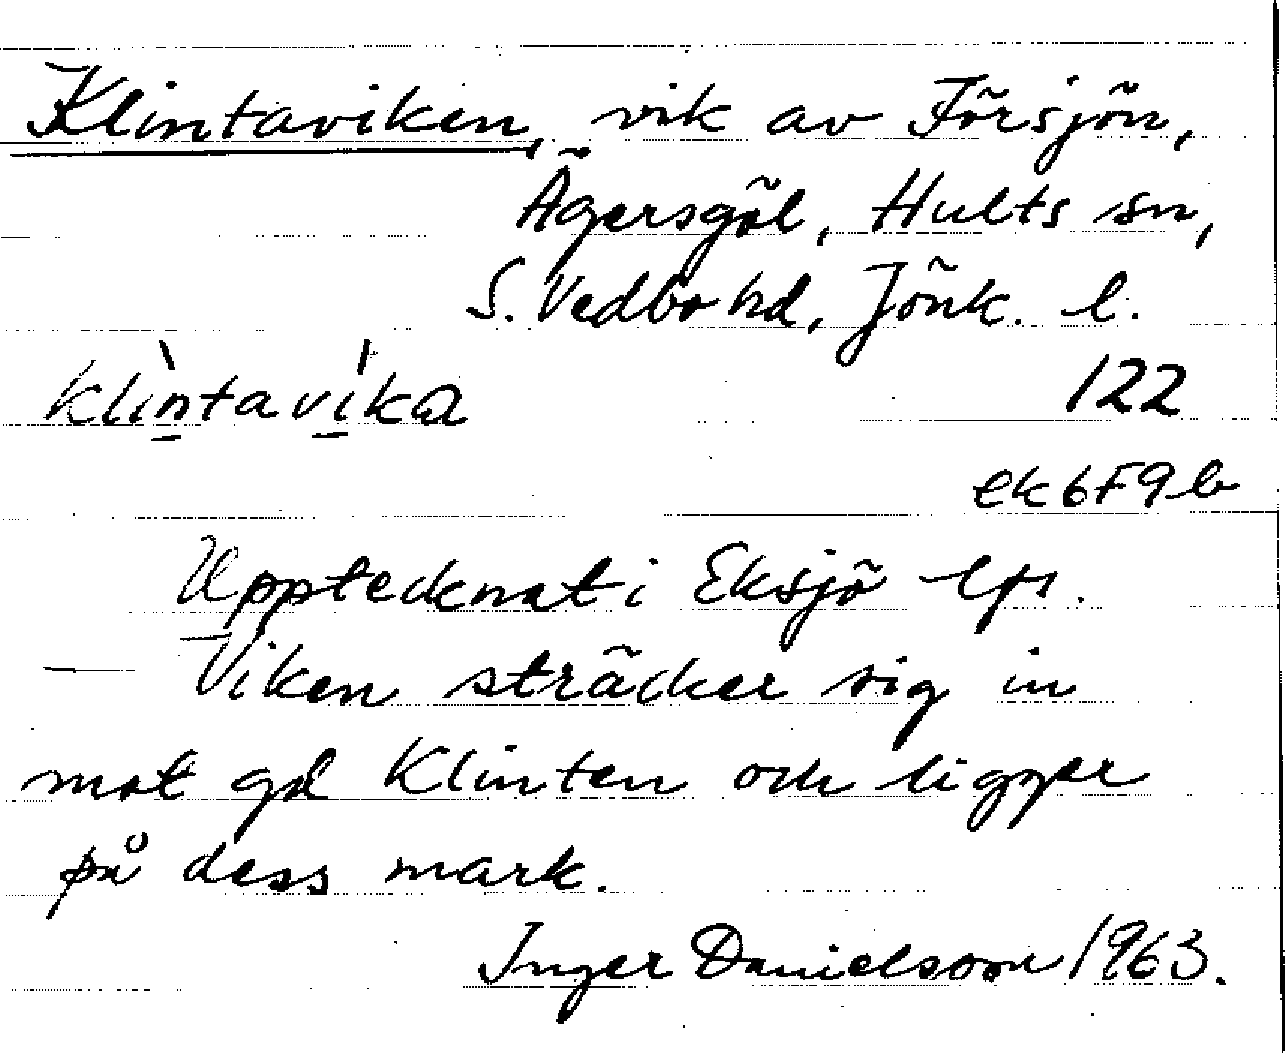 Klintaviken, vik av Försjön,
Ägersgöl, Hults sn,
S. Vedbo hd, Jönk. l.
klìntavíka
122
ek 6F9b
Upptecknat i Eksjö lfs.
Viken sträcker sig in
mot gd Klinten och ligger
på dess mark.
Inger Danielsson 1963.